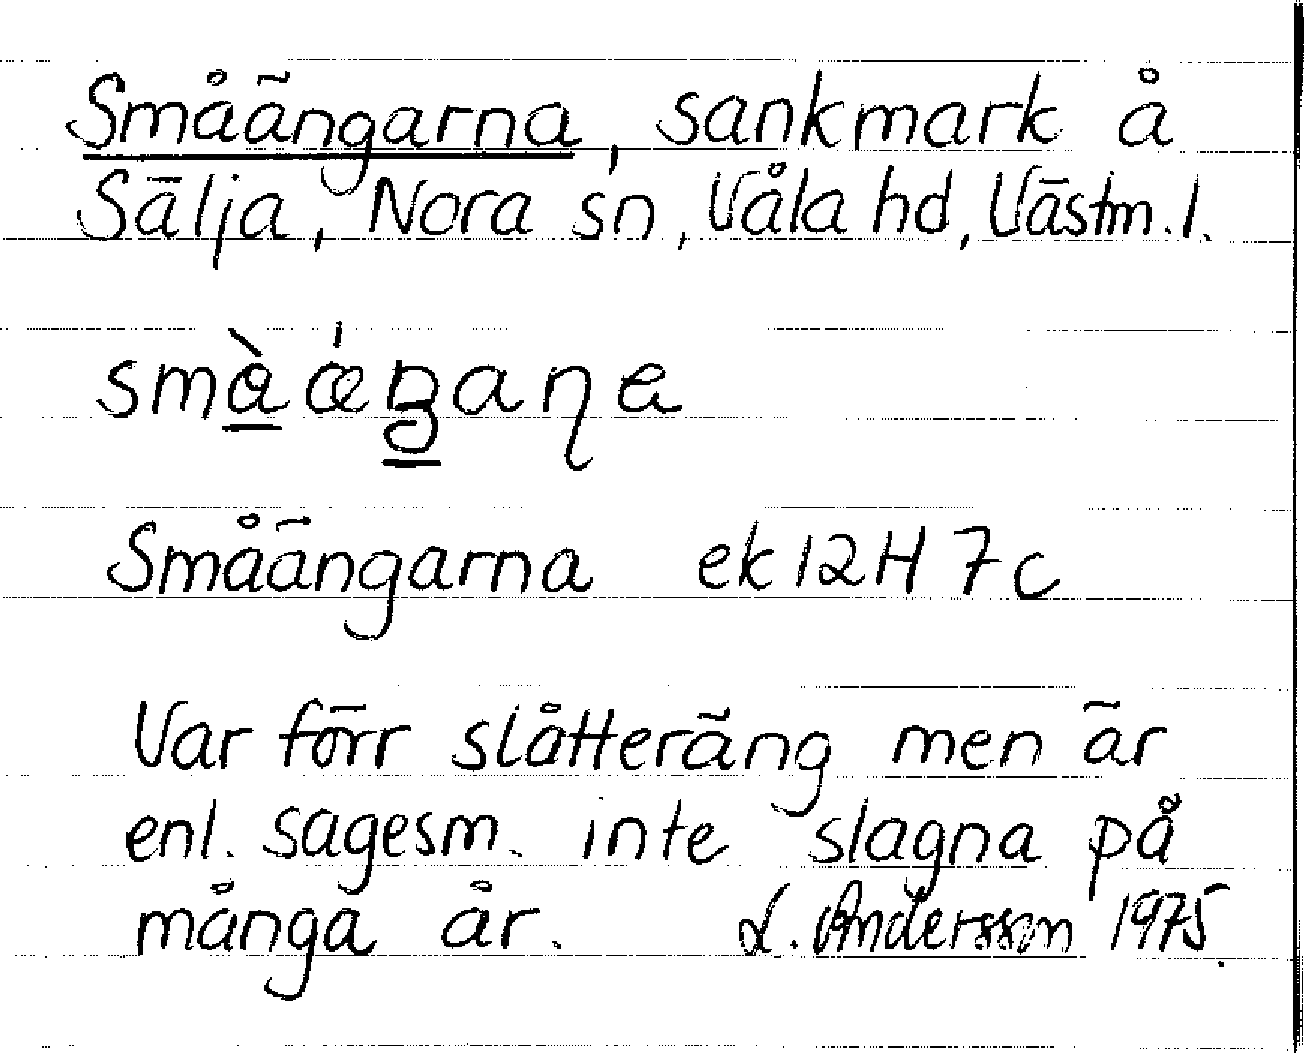 Småängarna, sankmark å
Sälja, Nora sn, Våla hd, Västm. l.
Småängarna ek 12H 7c
Var förr slåtteräng men är
enl. sagesm. inte slagna på
många år. L. Andersson 1975.